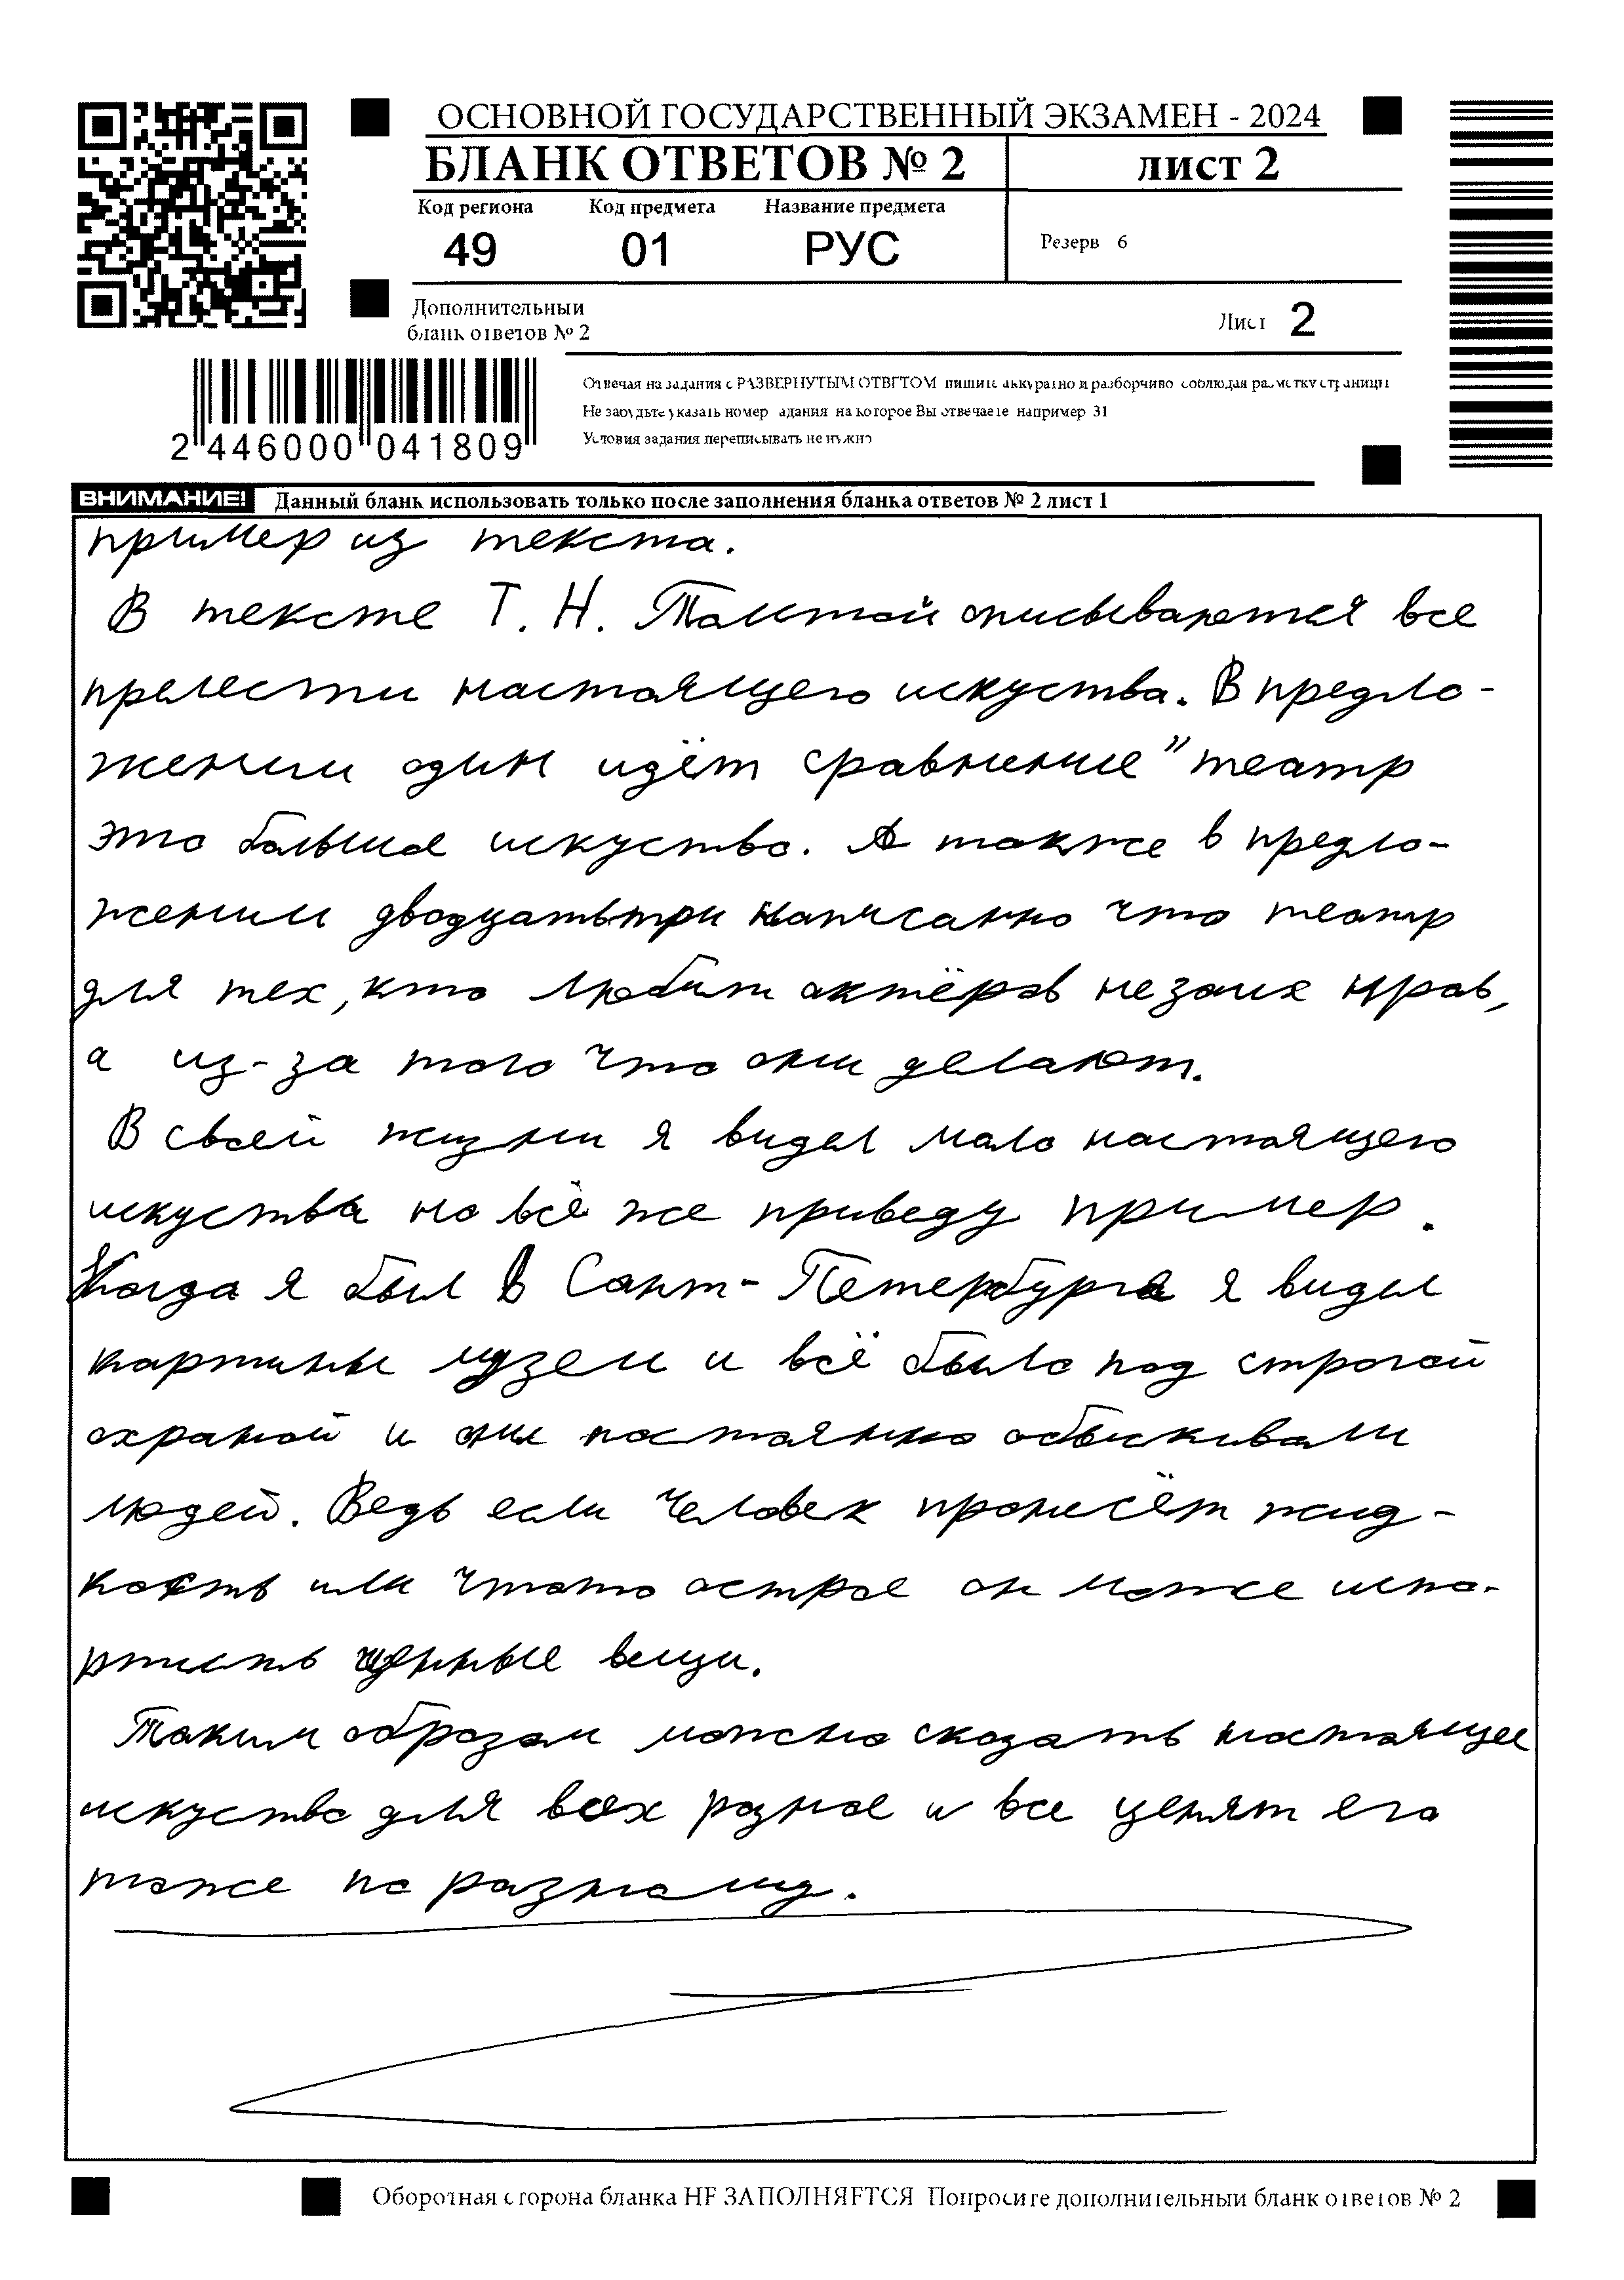 ОСНОВНОЙ ГОСУДАРСТВЕННЫЙ ЭКЗАМЕН - 2024
БЛАНК ОТВЕТОВ № 2
лист 2
Код региона
Код предмета
Название предмета
49
01
РУС
Резерв 6
Дополнительный
бланк ответов № 2
Лист 2
2 446000 041809
Отвечая на задания с РАЗВЕРНУТЫМ ОТВЕТОМ пишите аккуратно и разборчиво соблюдая разметку страницы
Не забудьте указать номер задания на которое Вы отвечаете например 31
Условия задания переписывать не нужно
ВНИМАНИЕ!
Данный бланк использовать только после заполнения бланка ответов № 2 лист 1
пример из текста.
В тексте Т. Н. Толстой описываются все
прелести настоящего искуства. В предло-
жении один идёт сравнение "театр
это большое искуство. А также в предло-
жении двадцатьтри написанно что театр
для тех, кто любит актёров не за их нрав,
а из-за того что они делают.
В своей жизни я видел мало настоящего
искуства но всё же приведу пример.
Когда я был в Санкт-Петербурге я видел
картины музеи и всё было под строгой
охраной и они постоянно обыскивали
людей. Ведь если человек пронесёт жид-
кость или чтото острое он може испо-
ртить ценные вещи.
Таким образом можно сказать настоящее
искуство для всех разное и все ценят его
тоже по разному.
Оборотная сторона бланка НЕ ЗАПОЛНЯЕТСЯ Попросите дополнительный бланк ответов № 2